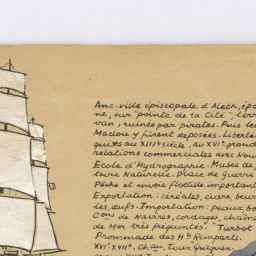 Anc. ville épiscopale d'Aleth, épo
ne, sur "pointe de la Cité"
van, ruinée par pirates. Puis
Maclou y firent déposées. Liberté
au XIIIe siècle, au XVIe
relations commerciales avec
Ecole d'Hydrographie. Musée de
ture Naturelle. Place de guerre
Pêche et envoi flottille important
Exportation: céréales, cuirs, beur
les, œufs. Importation: peaux, bo
Con de navires, cordages, chaîn
de mer très fréquentés. Turbot
Promenade des Remparts.
XVe XVIe, Chau, Tour Quiquen